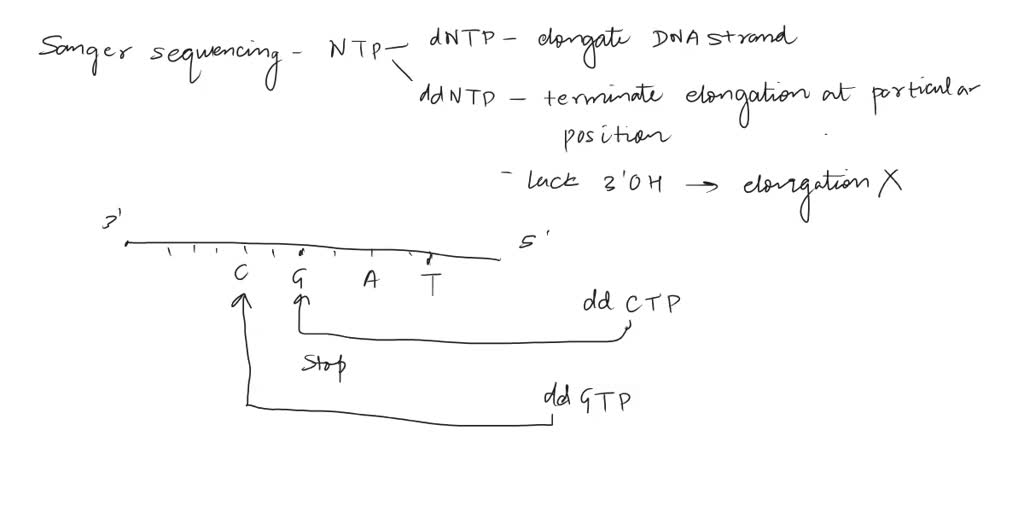 Sanger sequencing - NTP - dNTP - elongate DNA strand
ddNTP - terminate elongation at particular
position
- Lack 3'OH → elongation X
3' 5'
C G A T
dd CTP
Stop
dd GTP